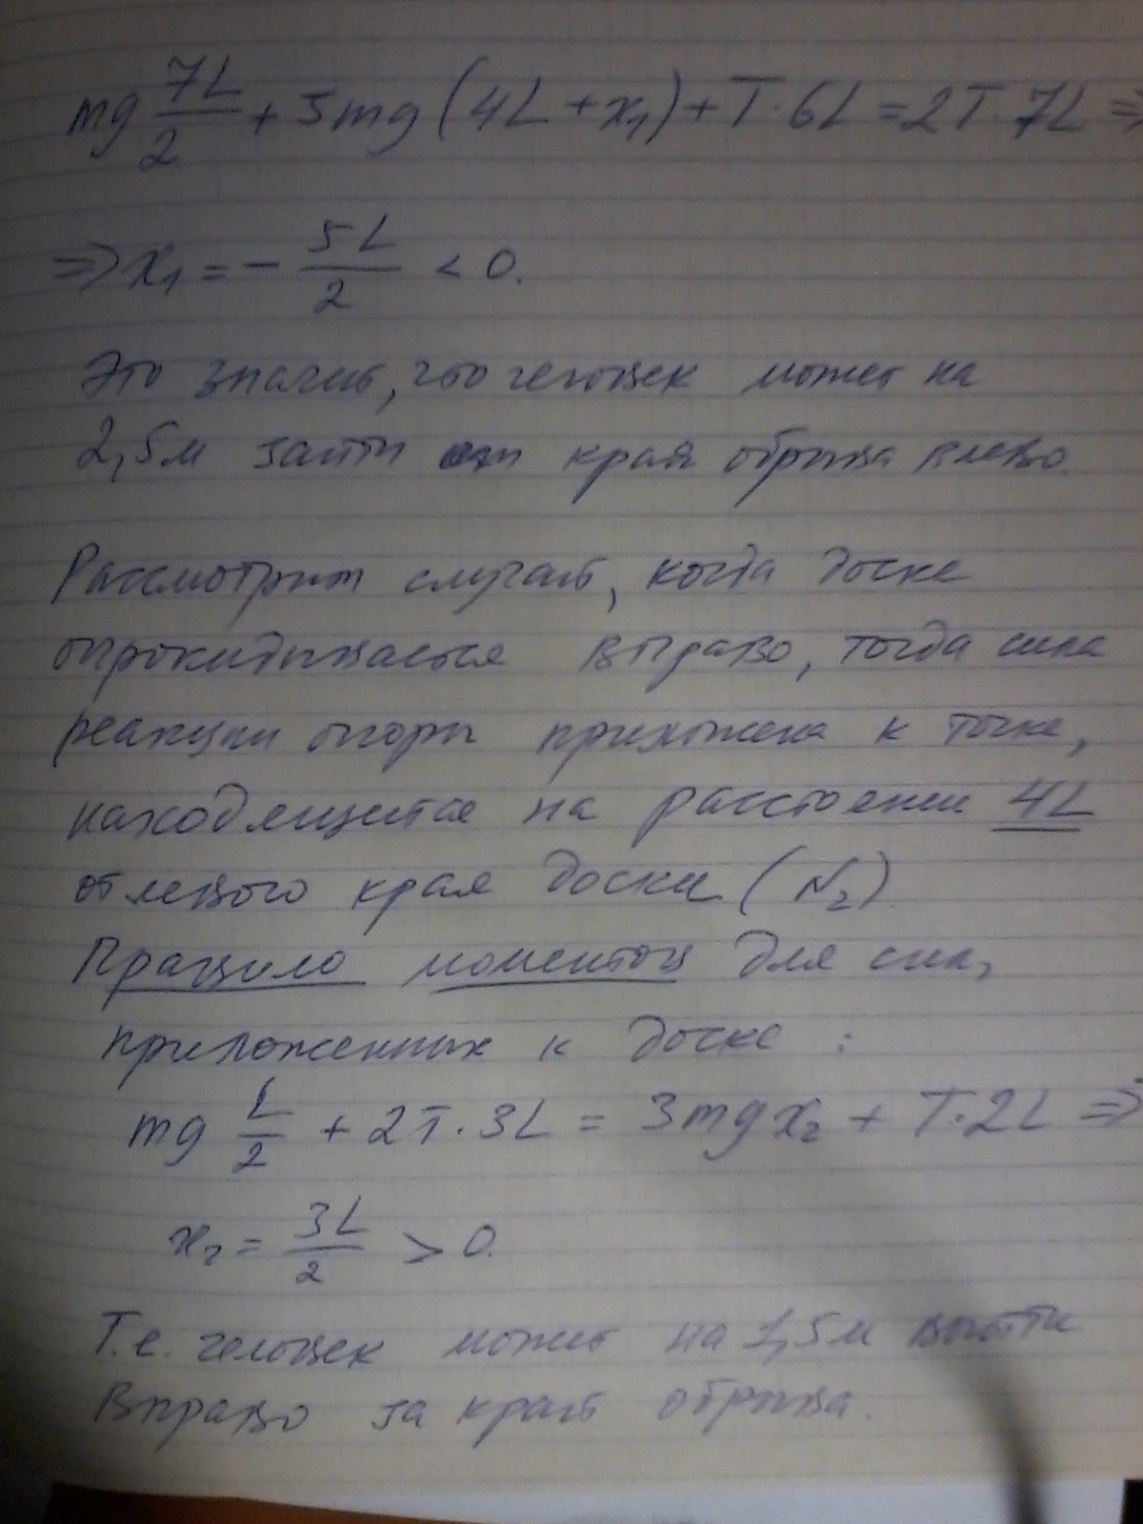 mg 7L/2 + 3mg (4L + x₁) + T·6L = 2T·7L ⇒
⇒ x₁ = - 5L/2 < 0.
Это значит, что человек может на
2,5м зайти от края обрыва влево.
Рассмотрим случай, когда доска
опрокидывается вправо, тогда сила
реакции опоры приложена к точке,
находящейся на расстоянии 4L
от левого края доски (N₂).
Правило моментов для сил,
приложенных к доске :
mg L/2 + 2T·3L = 3mgx₂ + T·2L ⇒
x₂ = 3L/2 > 0.
Т.е. человек может на 1,5м выйти
вправо за край обрыва.